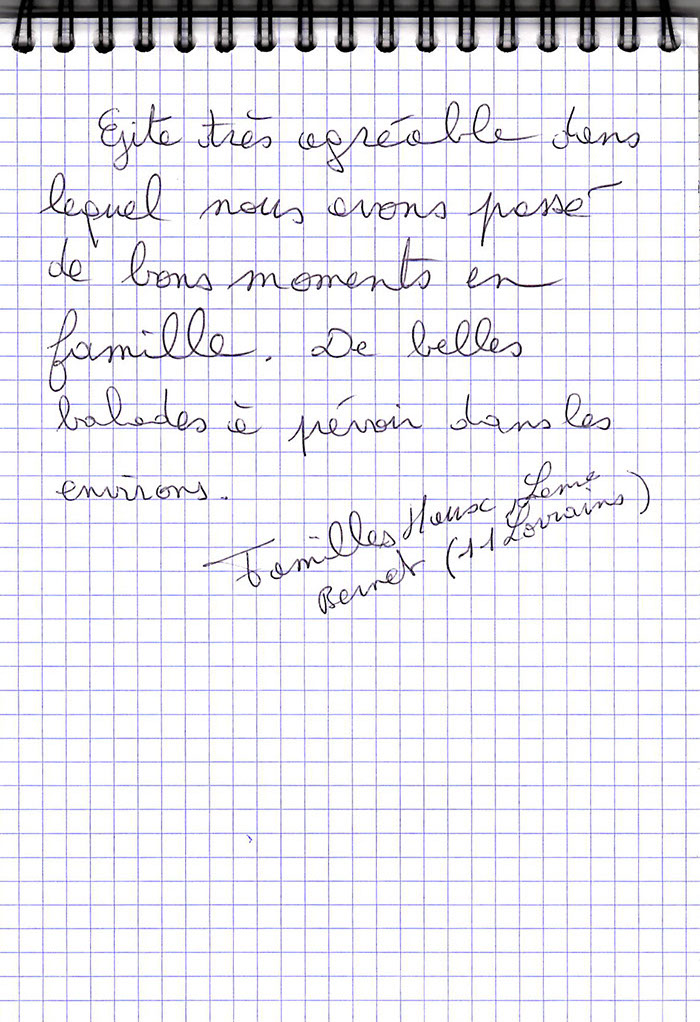 Gîte très agréable dans
lequel nous avons passé
de bons moments en
famille. De belles
balades à pévoir dans les
environs.
Familles Houx, Leme
Bernet (11 Lorrains)